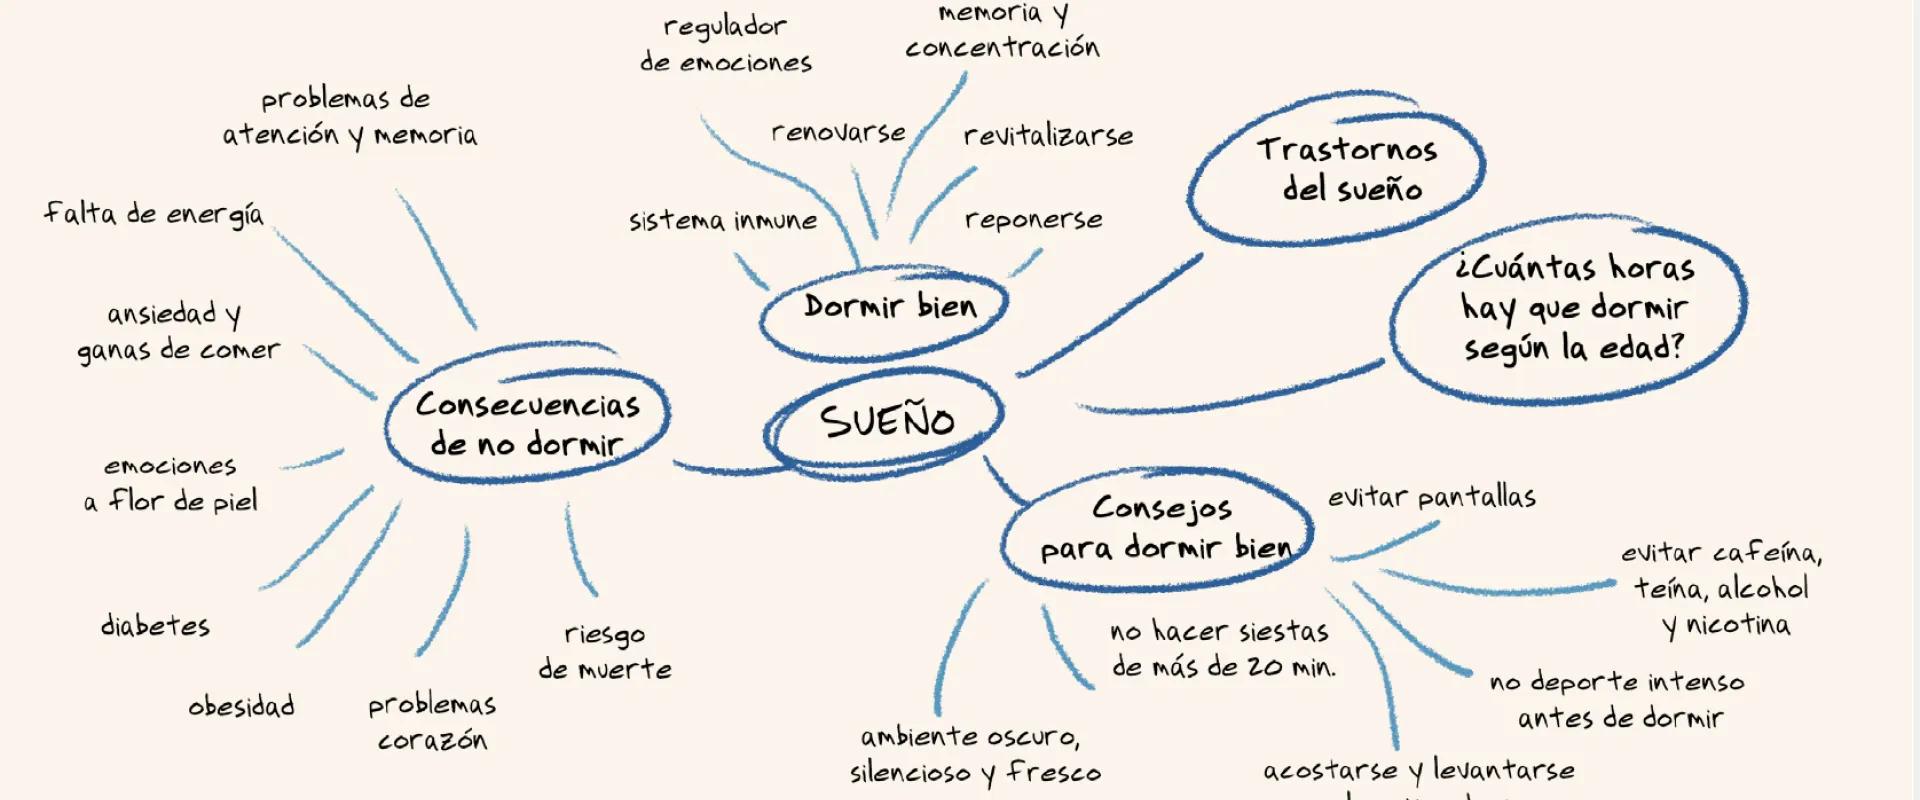 memoria y
concentración
regulador
de emociones
renovarse
revitalizarse
sistema inmune
reponerse
Dormir bien
Trastornos
del sueño
¿Cuántas horas
hay que dormir
según la edad?
problemas de
atención y memoria
falta de energía
ansiedad y
ganas de comer
Consecuencias
de no dormir
SUEÑO
emociones
a flor de piel
diabetes
obesidad
problemas
corazón
riesgo
de muerte
Consejos
para dormir bien
evitar pantallas
evitar cafeína,
teína, alcohol
y nicotina
no hacer siestas
de más de 20 min.
no deporte intenso
antes de dormir
ambiente oscuro,
silencioso y fresco
acostarse y levantarse